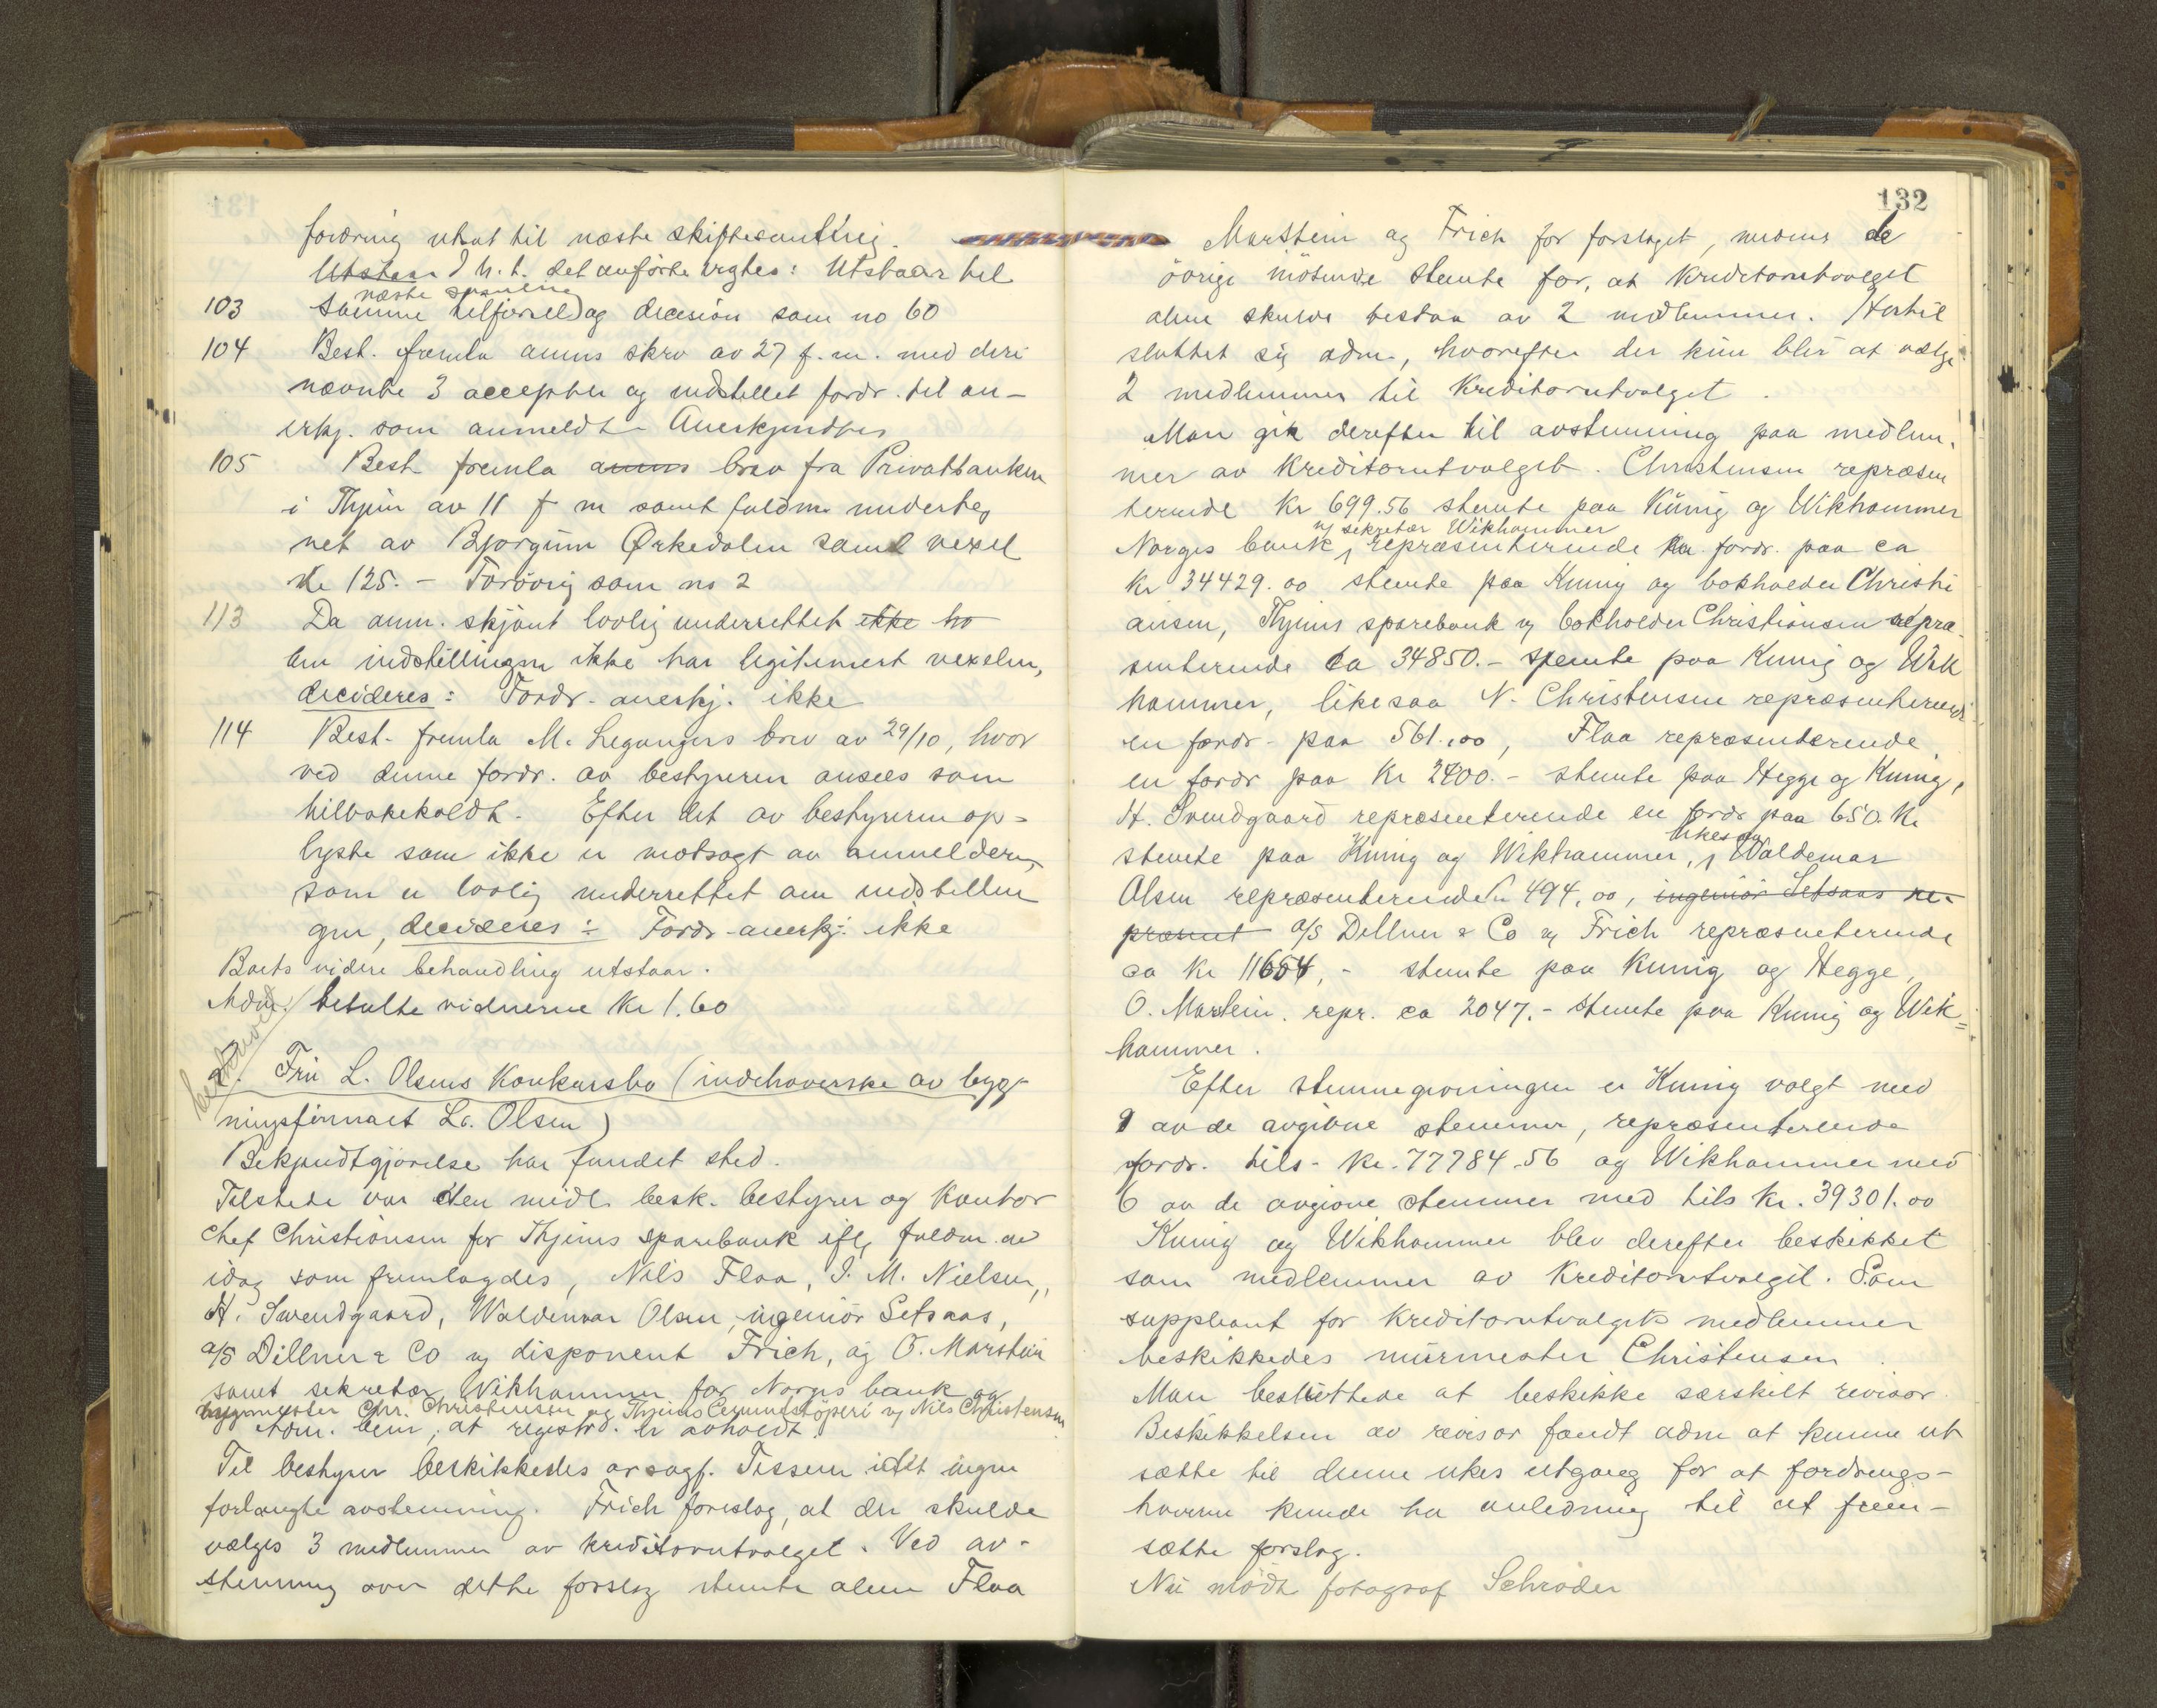 fordring utsat til næste skiftesamling.
Utstaar d h. t. det anførte vegtes: Utstaar til
næste samling
103 Samme tilførsel og decision som no 60
104 Best. fremla anms skrv av 27 f. m. med deri
nævnte 3 accepter og indstillet fordr. til an-
erkj. som anmeldt - Anerkjendtes
105 Best fremla anms brev fra Privatbanken
i Thjem av 11 f m samt fuldm underteg
net av Bjørgum Ørkedalen samt vexel
Kr 125. - Forøvrig som no 2
113 Da anm. skjønt lovlig underrettet ikke ho
om indstillingen ikke har legitimert vexelen,
decideres: Fordr. anerkj. ikke
114 Best. fremla M. Legangers brev av 29/10, hvor
ved denne fordr. av bestyreren ansees som
tilbakekaldt. Efter det av bestyreren op-
lyste som ikke er motsagt av anmelderen,
som er lovlig underrettet om indstillin
gen, decideres: Fordr. anerkj. ikke
Boets videre behandling utstaar.
Adm. betalte vidnerne Kr 1.60
2. Fru L. Olsens Konkursbo (indehaverske av byg-
ningsfirmaet L. Olsen)
Bekjendtgjørelse har fundet sted.
Tilstede var den midl. besk. bestyrer og Kontor
chef Christiansen for Thjems sparebank ifl. fuldm. av
idag som fremlagdes, Nils Flaa, I. M. Nielsen,
H. Svendgaard, Waldemar Olsen, ingeniør Setsaas,
a/s Dillner & Co v/ disponent Frich, og O. Marstein
samt sekretær Wikhammer for Norges bank og
bygmester Chr. Christensen og Thjems Cementstøperi v/ Nils Christensen
Adm. bem. at registr. er avholdt.
Til bestyrer beskikkedes o.r.sagf. Tessem idet ingen
forlangte avstemning. Frich foreslog, at der skulde
vælges 3 medlemmer av kreditorutvalget. Ved av-
stemning over dette forslag stemte alene Flaa
132
Marstein og Frich for forslaget, medens de
øvrige møtende stemte for, at Kreditorutvalget
alene skulde bestaa av 2 medlemmer. Hertil
sluttet sig adm, hvorefter der kun blir at vælge
2 medlemmer til Kreditorutvalget.
Man gik derefter til avstemning paa medlem-
mer av Kreditorutvalget. Christensen repræsen
terende Kr 699.56 stemte paa Kunig og Wikhammer
v/ sekretær Wikhammer
Norges bank, repræsenterende en fordr. paa ca
Kr 34429.00 stemte paa Kunig og bokholder Christi
ansen, Thjems sparebank v/ bokholder Christiansen repræ-
senterende ca 34850.- stemte paa Kunig og Wik
hammer, likesaa N. Christensen repræsenterende
en fordr. paa 561.00, Flaa repræsenterende
en fordr paa Kr 2400.- stemte paa Hegge og Kunig,
H. Svendgaard repræsenterende en fordr paa 650. Kr
likesaa
stemte paa Kunig og Wikhammer, Waldemar
Olsen repræsenterende Kr 494.00, ingeniør Setsaas re-
præsent a/s Dillner & Co v/ Frich repræsenterende
ca Kr 11654,- stemte paa Kunig og Hegge,
O. Marstein. repr. ca 2047.- stemte paa Kunig og Wik-
hammer.
Efter stemmegivningen er Kunig valgt med
9 av de avgivne stemmer, repræsenterende
fordr. tils. Kr. 77784.56 og Wikhammer med
6 av de avgivne stemmer med tils Kr. 39301.00
Kunig og Wikhammer blev derefter beskikket
som medlemmer av Kreditorutvalget. Som
suppleant for Kreditorutvalgets medlemmer
beskikkedes murmester Christensen.
Man besluttede at beskikke særskilt revisor.
Beskikkelsen av revisor fandt adm at kunne ut
sætte til denne ukes utgang for at fordrings-
haverne kunde ha anledning til at frem-
sætte forslag.
Nu mødte fotograf Schrøder